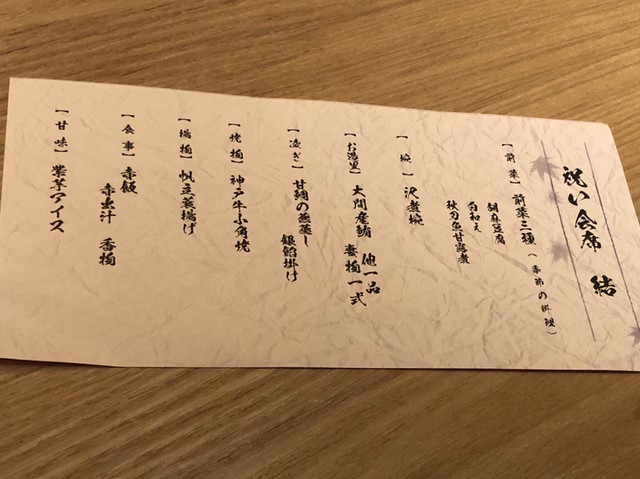 祝い会席 結
【前菜】前菜三種(季節の料理)
胡麻豆腐
白和え
秋刀魚甘露煮
【椀】沢煮椀
【お造里】大間産鮪 他一品
妻物一式
【凌ぎ】甘鯛の蕪蒸し
銀餡掛け
【焼物】神戸牛小角焼
【揚物】帆立蓑揚げ
【食事】赤飯
赤出汁 香物
【甘味】紫芋アイス